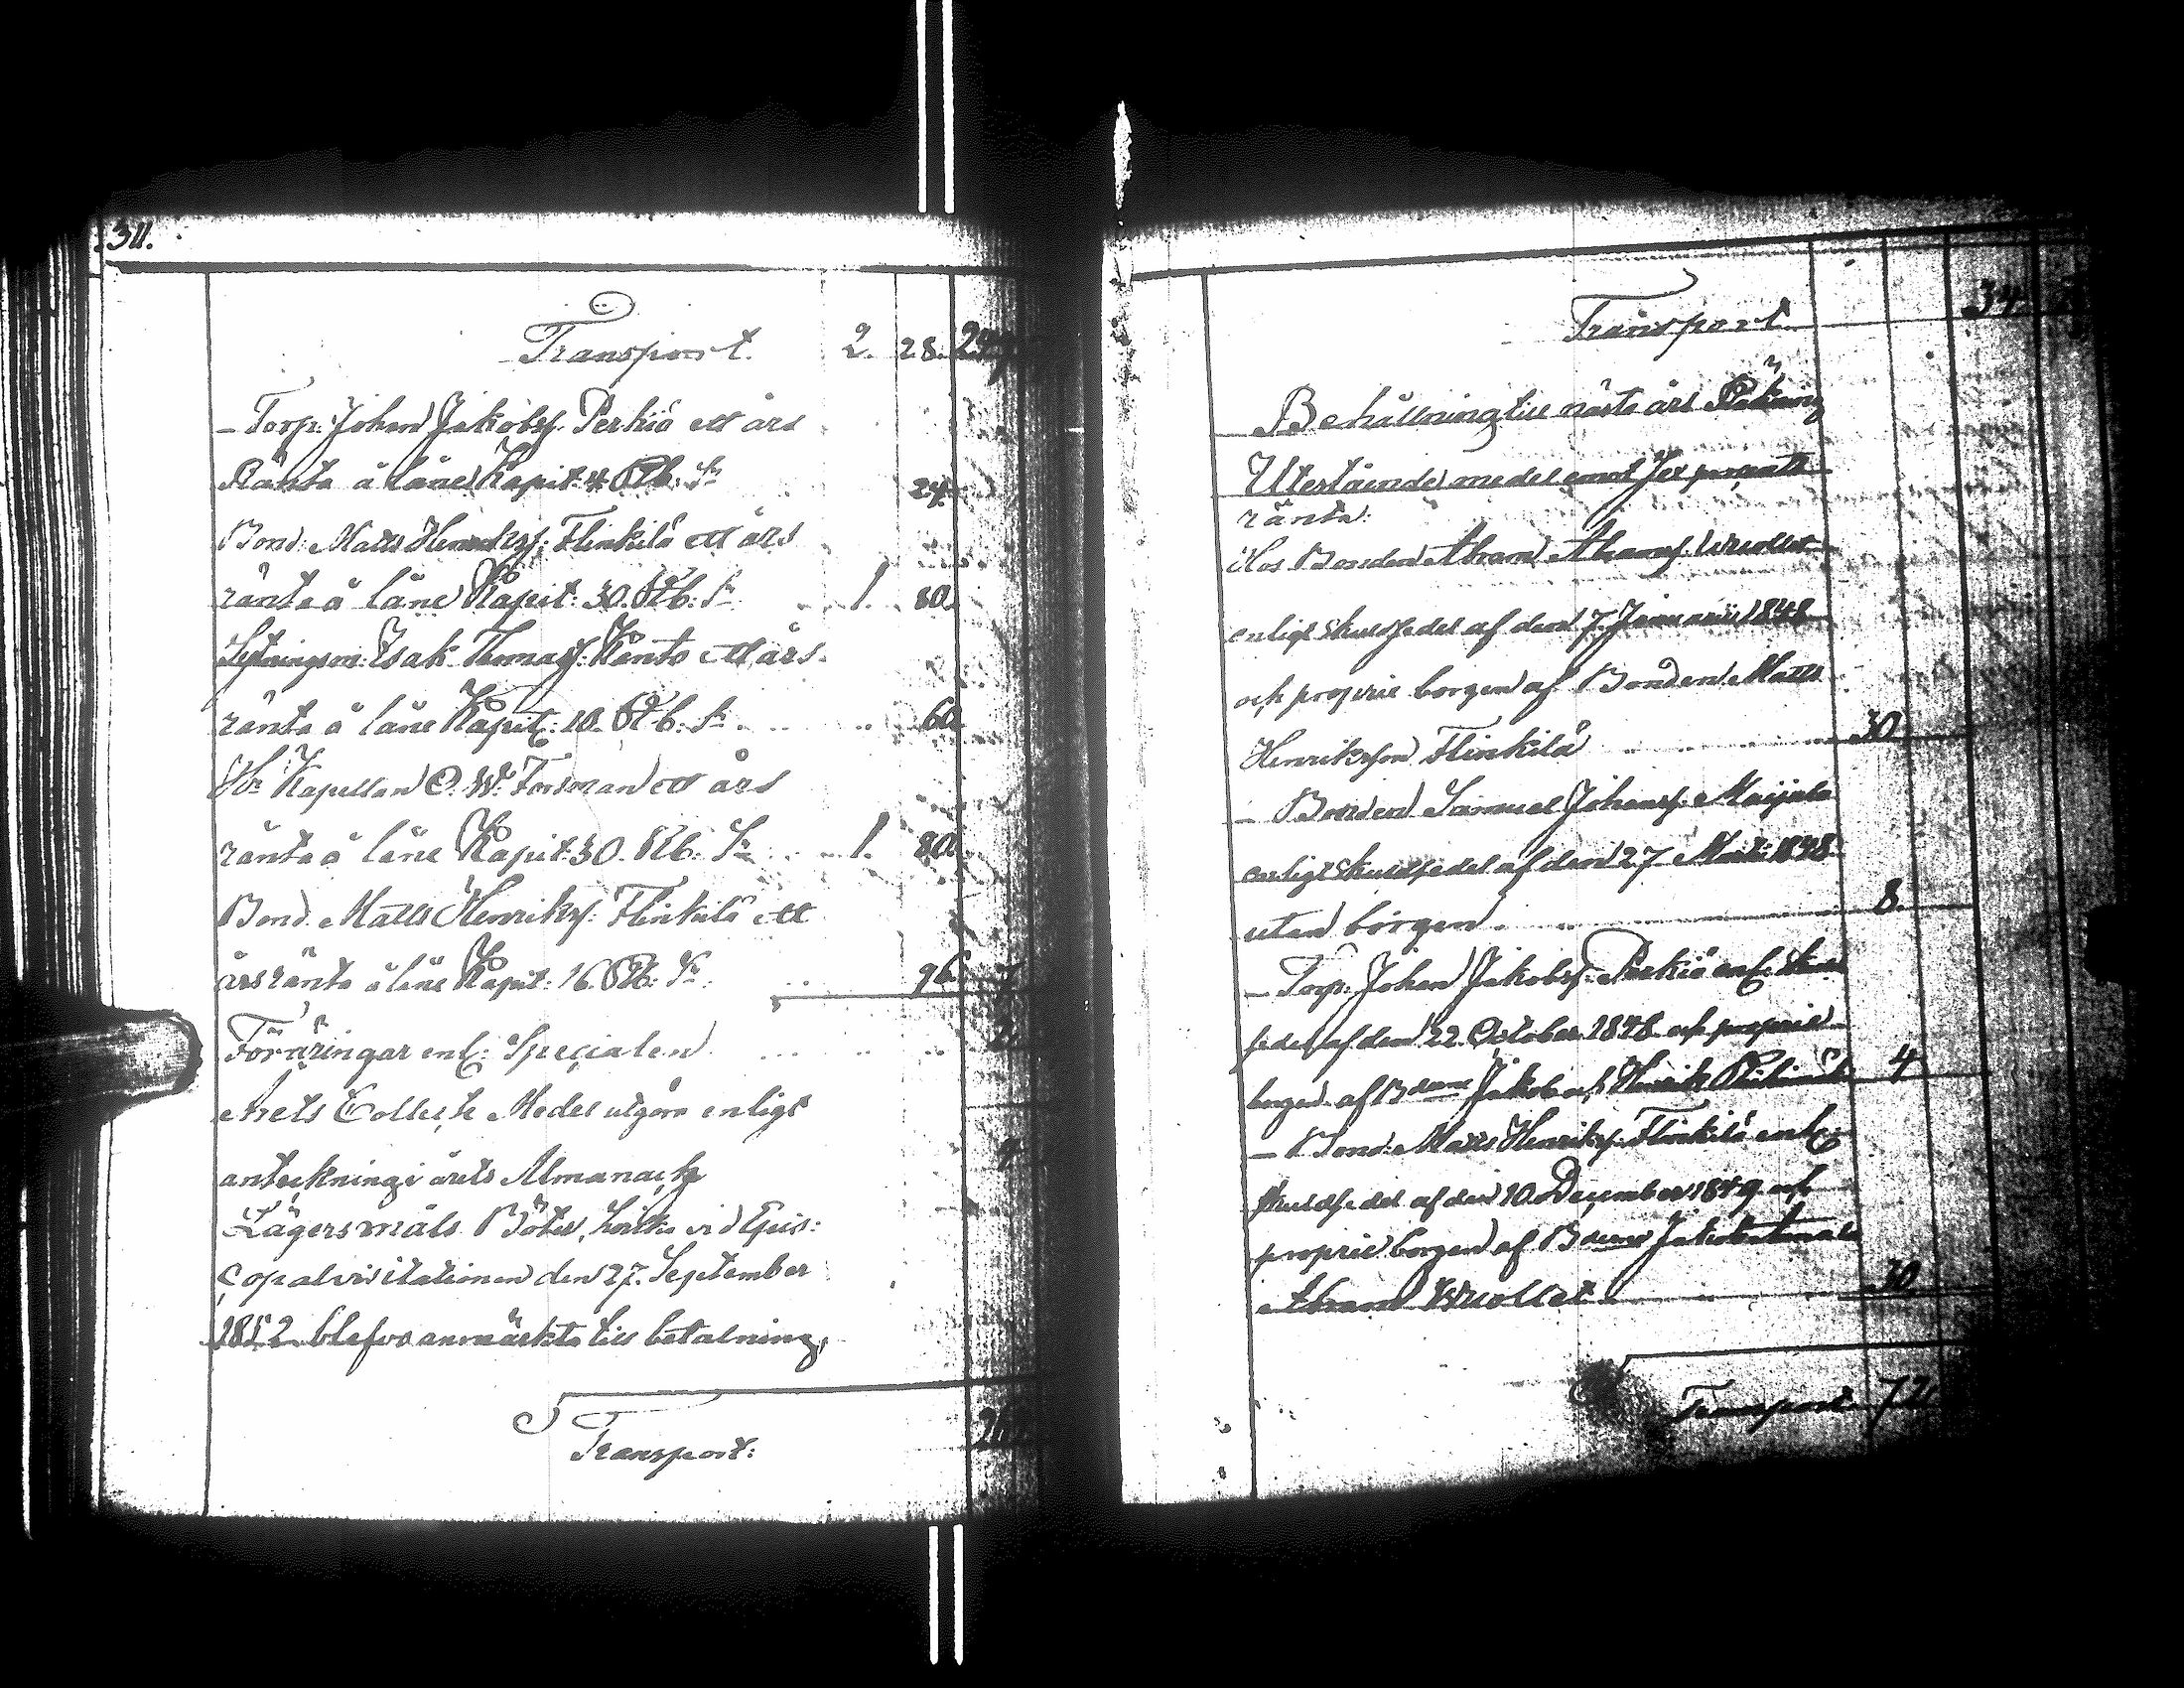 311.
Transport. 2. 28. 24
– Torp: Johan Jakobss: Perkiö ett års
Ränta å låne Kapit: 4 Rb: Sr 24.
Bond: Matts Henrikss: Flinkilä ett års
ränta å låne Kapit: 30. Rb: Sr 1. 80.
Isak Thomass: Känto ett års
ränta å låne Kapit: 10. Rb: Sr 60.
Hr Kapellan C. W. Forsman ett års
ränta å låne Kapit: 30. Rb: Sr 1. 80.
Bond. Matts Henrikss: Flinkilä ett
års ränta å låne Kapit: 16. Rb: Sr 96. 7
Föräringar enl: Specialen 2.
Årets Collect Medel utgöra enligt
anteckning i årets Almanach
Lägersmåls Böter, hvilka vid Epis:
copalvisitationen den 27. September
1852 blefvo anmärkta till betalning,
Transport:
Transport 34.
Behållning till nästa års Räkning
Utestående medel emot sex procents
ränta:
Hos Bonden Abram Abramss: Wuollet
enligt skuldsedel af den 7. Januarii 1848
och proprie borgen af Bonden Matts
Henriksson Flinkilä 30
– Bonden Samuel Johanss: Maijala
enligt skuldsedel af den 27 Martii 1848
utan borgen 8.
– Torp: Johan Jakobss: Perkiö enl: skuld
sedel af den 22. October 1848 och proprie
borgen af Bderne Jakob och Henrik 4
– Bond: Matts Henrikss: Flinkilä enl:
skuldsedel af den 10. December 1849 och
proprie borgen af Bderne Jakob
Abram Wuollet 30
Transport 72.